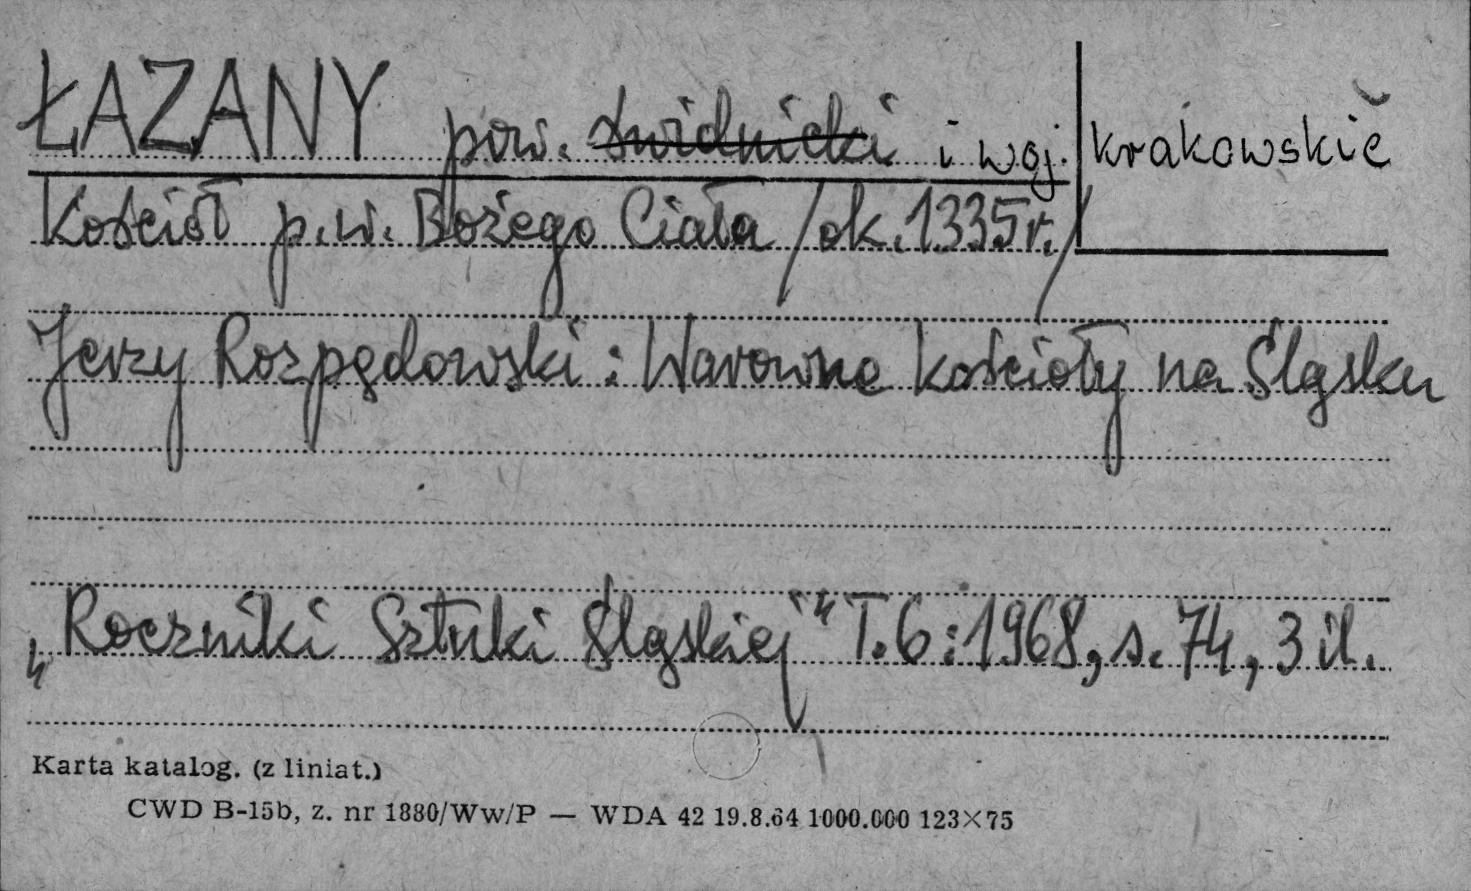 ŁAZANY pow. świdnicki i woj. krakowskie
Kościół p.w. Bożego Ciała /ok. 1335r./
Jerzy Rozpędowski : Warowne kościoły na Śląsku
„Roczniki Sztuki Śląskiej" T. 6 : 1968, s. 74, 3 il.
Karta katalog. (z liniat.)
CWD B-15b, z. nr 1880/Ww/P — WDA 42 19.8.64 1000.000 123×75